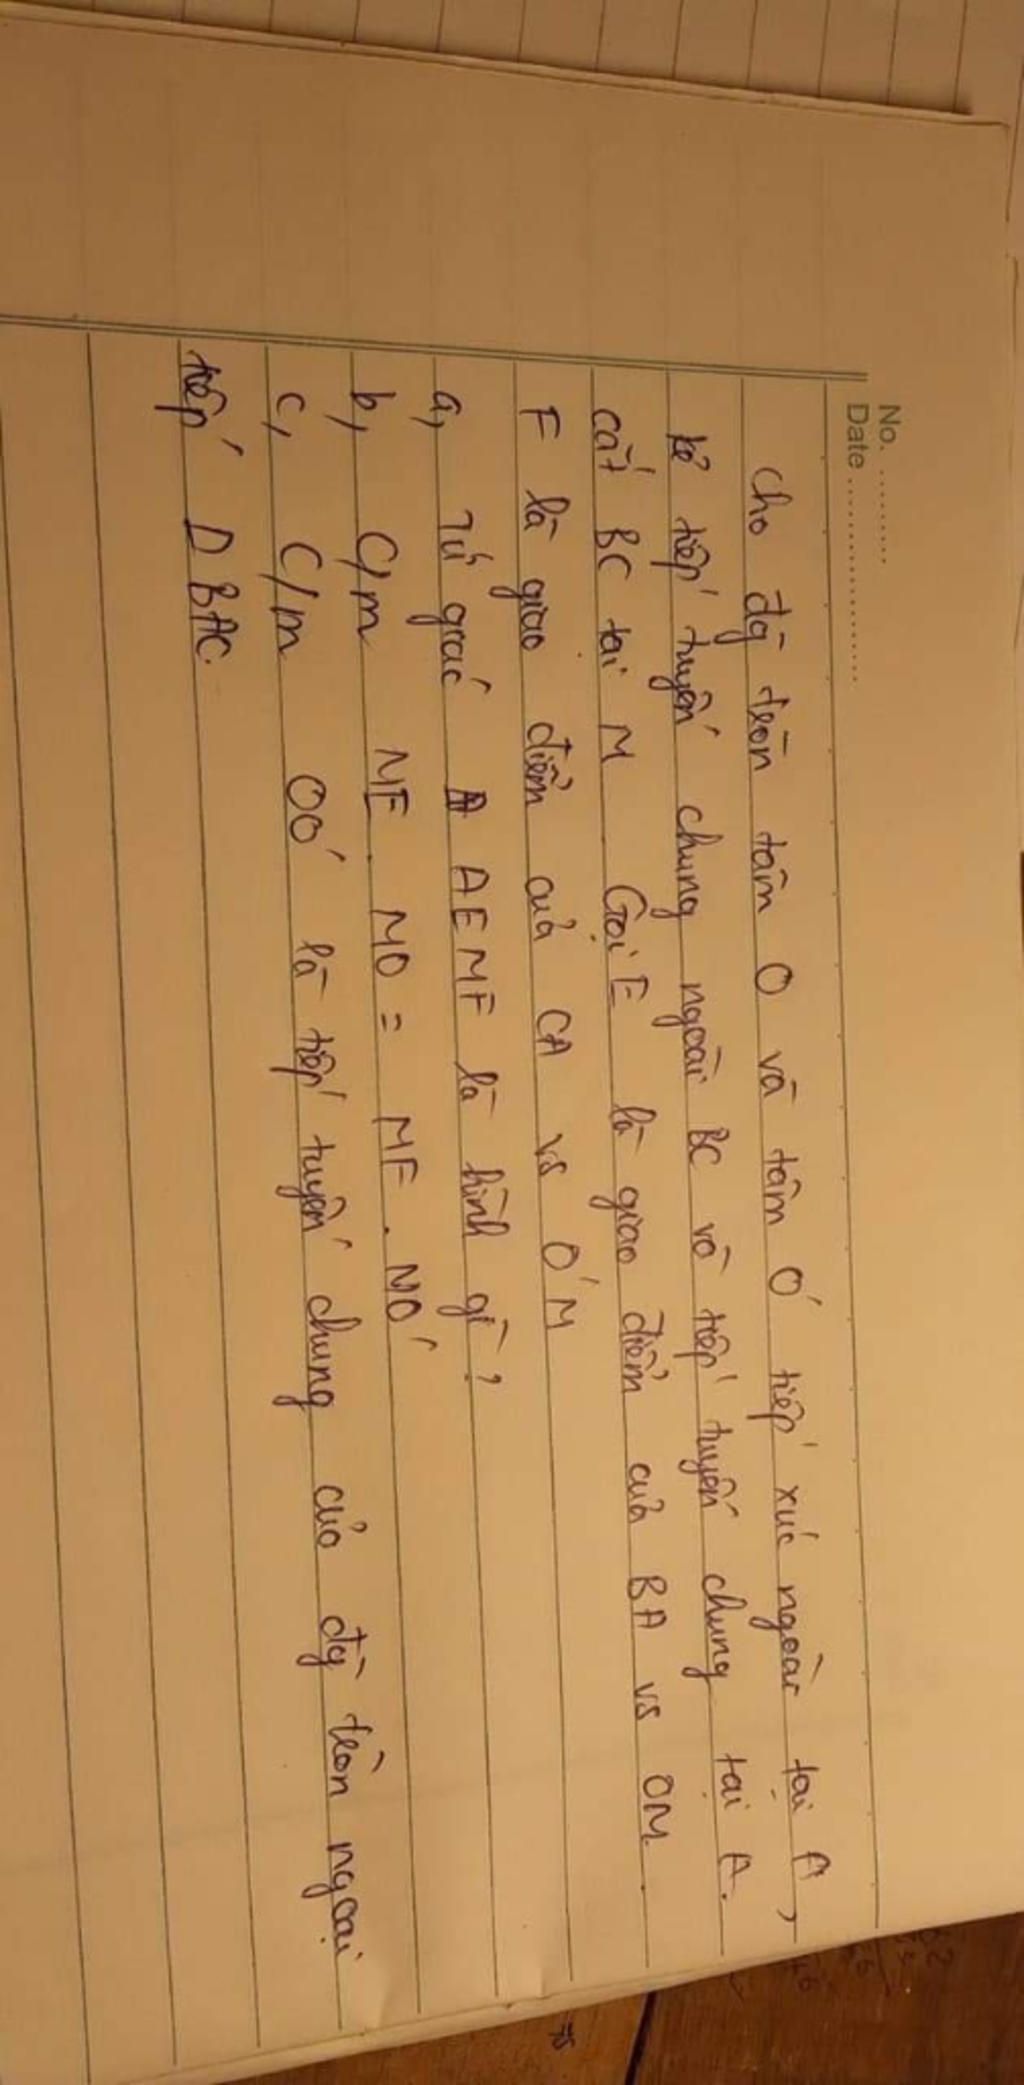 No. .........
Date ......................
cho đg tròn tâm O và tâm O' tiếp xúc ngoài tại A,
kẻ tiếp tuyến chung ngoài BC vã tiếp tuyến chung tại A.
cắt BC tại M Gọi E là giao điểm của BA vs OM.
F là giao điểm của CA vs O'M
a, Tứ giác AEMF là hình gì?
b, C/m ME. MO = MF. MO'
c, C/m OO' là tiếp tuyến chung của đg tròn ngoại
tiếp D BAC.